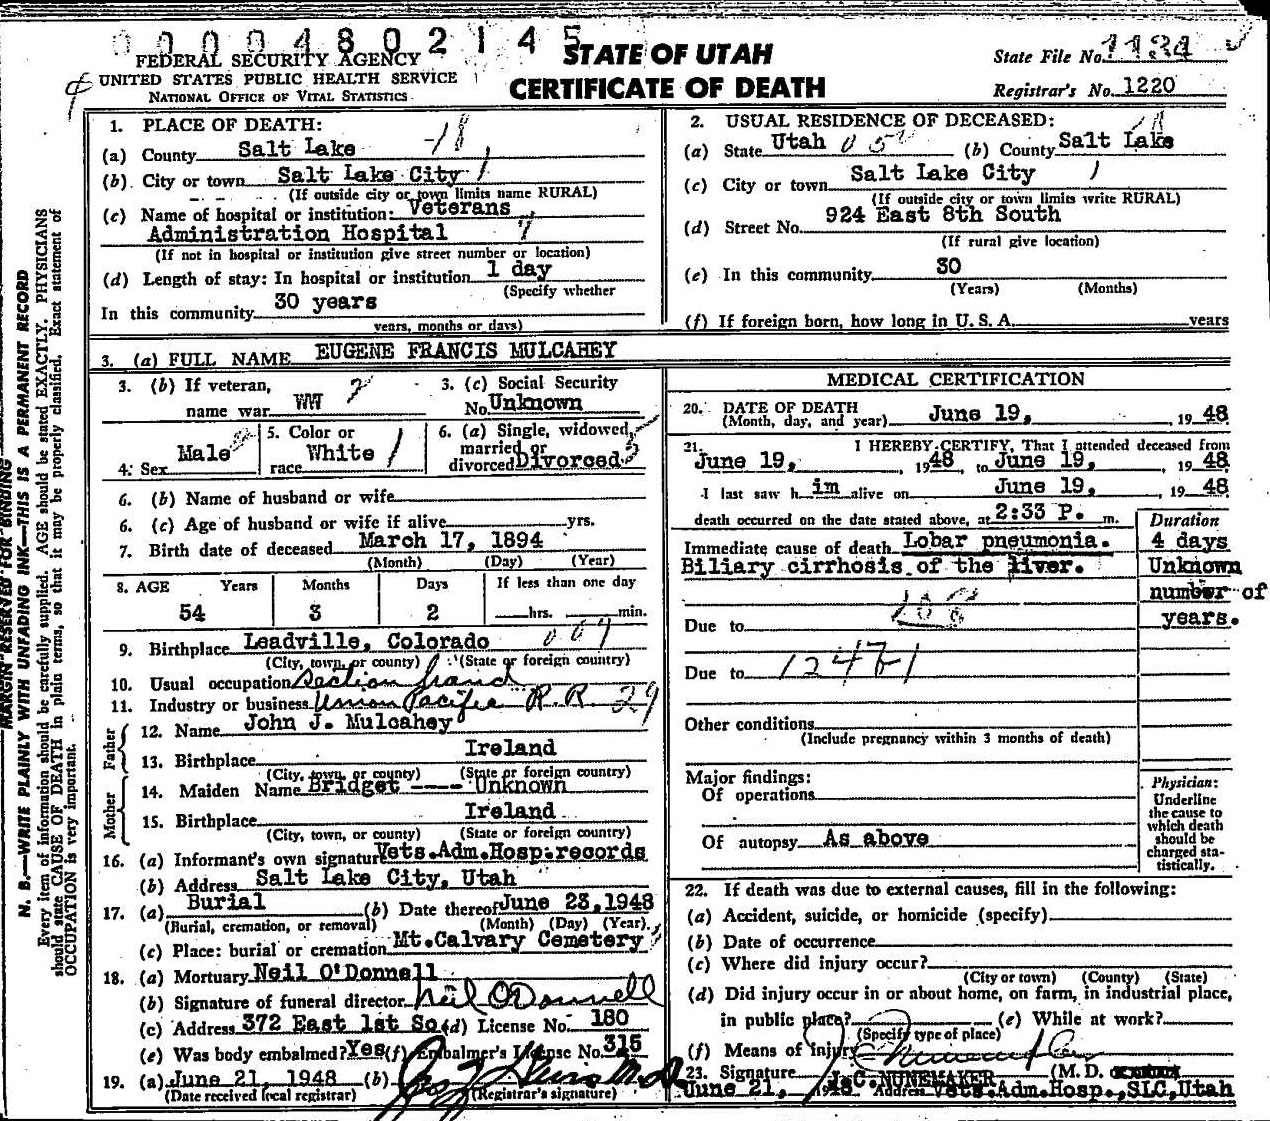 0 0 0 0 4 8 0 2 1 4 5
FEDERAL SECURITY AGENCY
UNITED STATES PUBLIC HEALTH SERVICE
NATIONAL OFFICE OF VITAL STATISTICS
STATE OF UTAH
CERTIFICATE OF DEATH
State File No. 1134
Registrar's No. 1220
MARGIN RESERVED FOR BINDING
N. B.—WRITE PLAINLY WITH UNFADING INK—THIS IS A PERMANENT RECORD
Every item of information should be carefully supplied. AGE should be stated EXACTLY. PHYSICIANS
should state CAUSE OF DEATH in plain terms, so that it may be properly classified. Exact statement of
OCCUPATION is very important.
1. PLACE OF DEATH:
(a) County Salt Lake -18
(b) City or town Salt Lake City 1
(If outside city or town limits name RURAL)
(c) Name of hospital or institution: Veterans
Administration Hospital
(If not in hospital or institution give street number or location)
(d) Length of stay: In hospital or institution 1 day
(Specify whether
In this community 30 years
years, months or days)
2. USUAL RESIDENCE OF DECEASED:
(a) State Utah (b) County Salt Lake
(c) City or town Salt Lake City 1
(If outside city or town limits write RURAL)
(d) Street No. 924 East 8th South
(If rural give location)
(e) In this community 30
(Years) (Months)
(f) If foreign born, how long in U. S. A. years
3. (a) FULL NAME EUGENE FRANCIS MULCAHEY
3. (b) If veteran,
name war WW
3. (c) Social Security
No. Unknown
4. Sex Male
5. Color or
race White
6. (a) Single, widowed,
married or
divorced Divorced
6. (b) Name of husband or wife
6. (c) Age of husband or wife if alive yrs.
7. Birth date of deceased March 17, 1894
(Month) (Day) (Year)
8. AGE Years Months Days If less than one day
54 3 2 hrs. min.
9. Birthplace Leadville, Colorado
(City, town, or county) (State or foreign country)
10. Usual occupation Section hand
11. Industry or business Union Pacific R. R. 29
Father
12. Name John J. Mulcahey
13. Birthplace Ireland
(City, town, or county) (State or foreign country)
Mother
14. Maiden Name Bridget ---- Unknown
15. Birthplace Ireland
(City, town, or county) (State or foreign country)
16. (a) Informant's own signature Vets.Adm.Hosp.records
(b) Address Salt Lake City, Utah
17. (a) Burial (b) Date thereof June 23,1948
(Burial, cremation, or removal) (Month) (Day) (Year)
(c) Place: burial or cremation Mt.Calvary Cemetery
18. (a) Mortuary Neil O'Donnell
(b) Signature of funeral director Neil O'Donnell
(c) Address 372 East 1st So. (d) License No. 180
(e) Was body embalmed? Yes (f) Embalmer's License No. 315
19. (a) June 21, 1948 (b)
(Date received local registrar) (Registrar's signature)
MEDICAL CERTIFICATION
20. DATE OF DEATH
(Month, day, and year) June 19, , 19 48
21. I HEREBY CERTIFY, That I attended deceased from
June 19, , 19 48, to June 19, , 19 48
I last saw h im alive on June 19, , 19 48
death occurred on the date stated above, at 2:33 P. m.
Duration
Immediate cause of death Lobar pneumonia. 4 days
Biliary cirrhosis of the liver. Unknown
number of
Due to years.
Due to 124B1
Other conditions
(Include pregnancy within 3 months of death)
Major findings:
Of operations
Of autopsy As above
Physician:
Underline
the cause to
which death
should be
charged sta-
tistically.
22. If death was due to external causes, fill in the following:
(a) Accident, suicide, or homicide (specify)
(b) Date of occurrence
(c) Where did injury occur?
(City or town) (County) (State)
(d) Did injury occur in or about home, on farm, in industrial place,
in public place? (e) While at work?
(Specify type of place)
(f) Means of injury
23. Signature J.C. NUNEMAKER (M. D.
June 21, , 1948 Address Vets.Adm.Hosp.,SLC,Utah